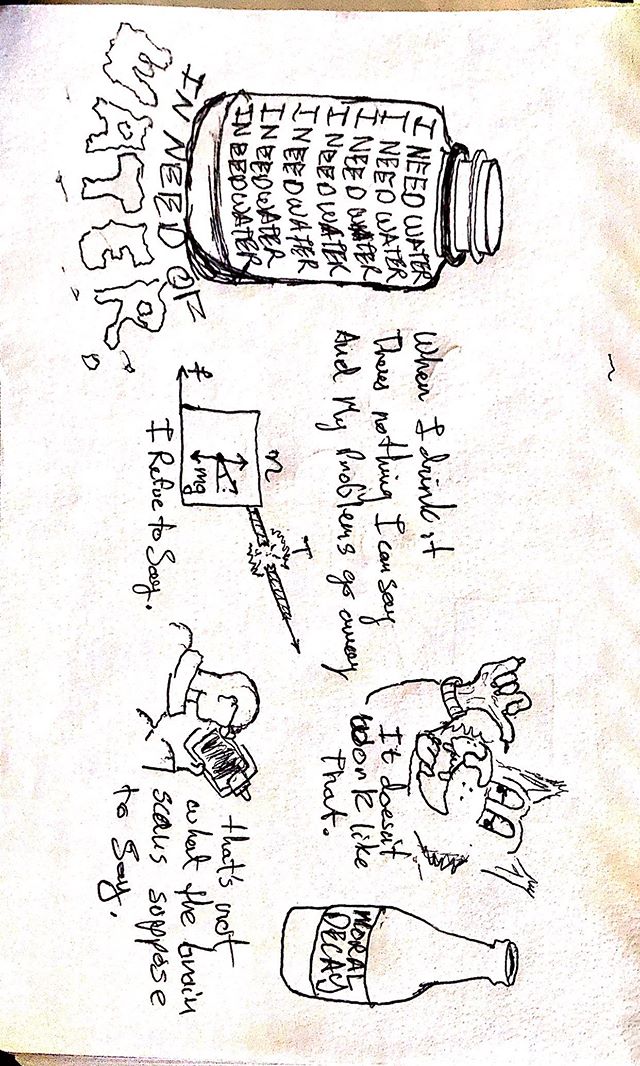 I NEED WATER
I NEED WATER
I NEED WATER
I NEED WATER
I NEED WATER
I NEED WATER
I NEED WATER
IN NEED OF
WATER.
When I drink it
Theres nothing I can say
And My Problems go away
It doesn't
work like
that.
MORAL
DECAY
n
T
f
mg
I Refue to Say.
that's not
what the brain
scans suppose
to Say.